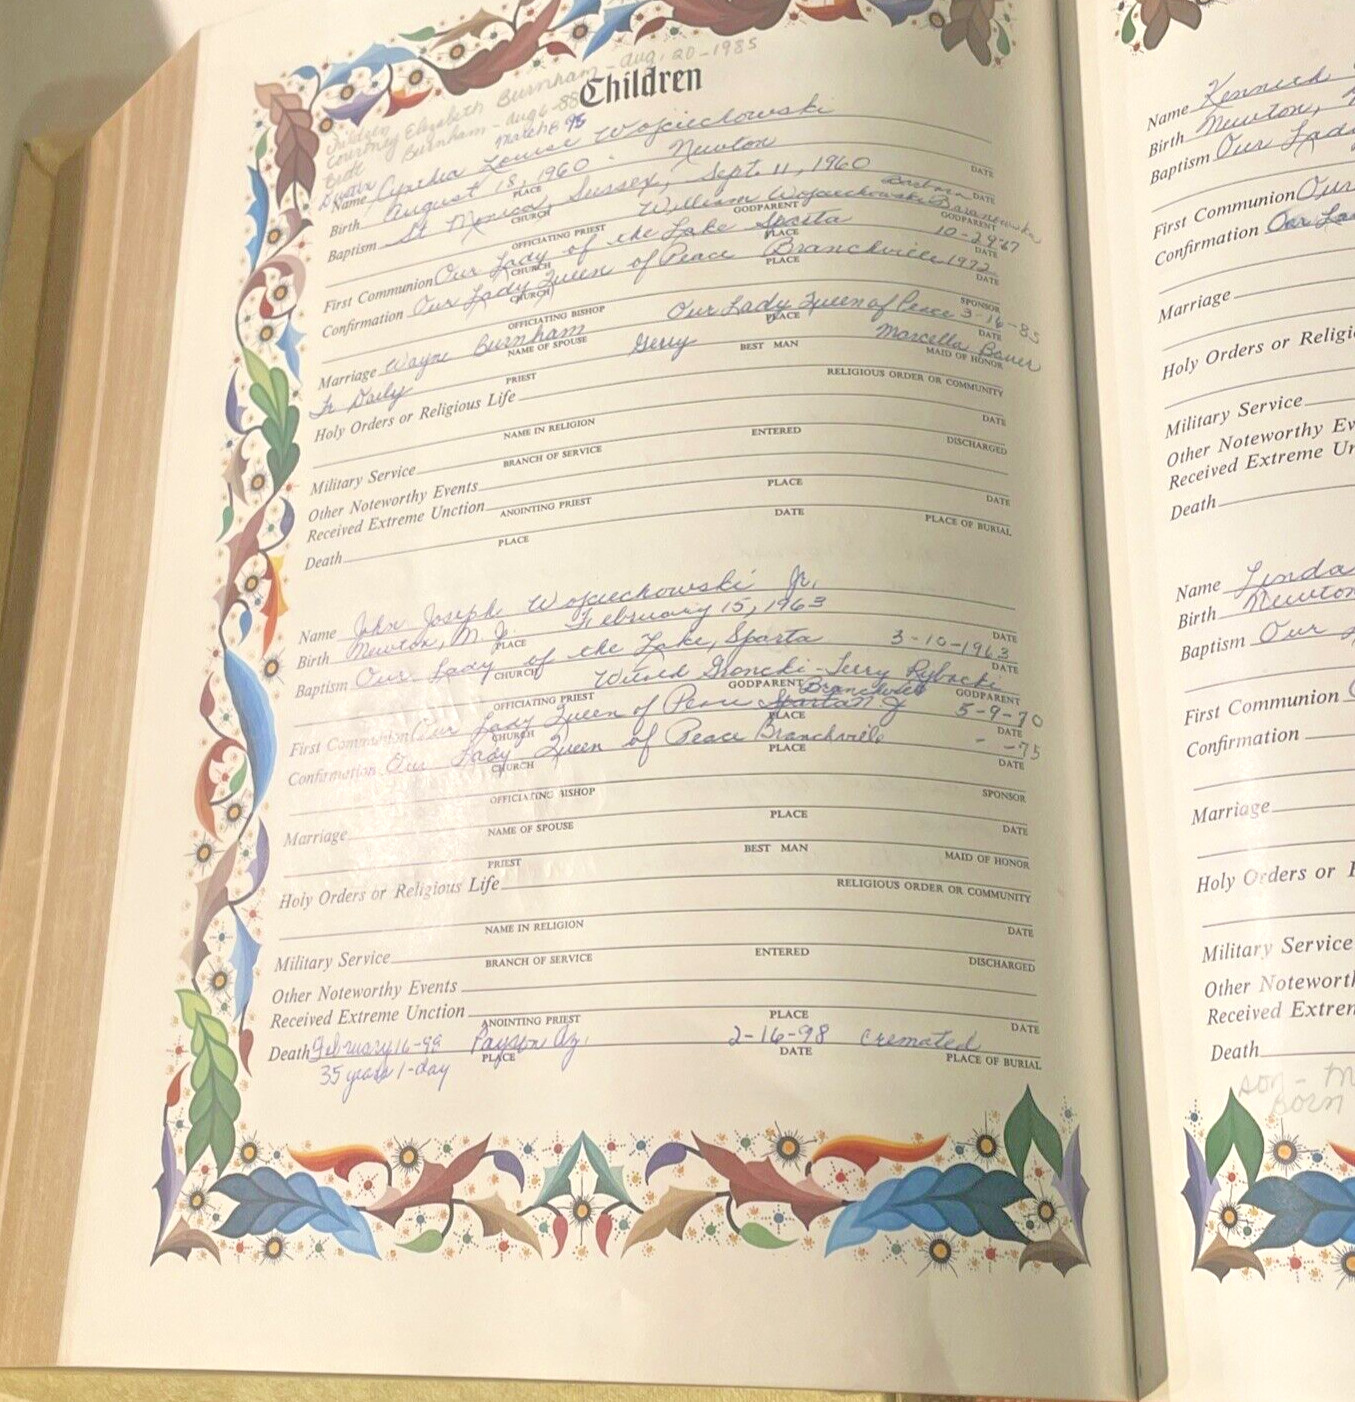 Children
Courtney Elizabeth Burnham - Aug, 20-1985
Children
Brett Burnham - Aug 6-88
March 8 95
Name Cynthia Louise Wojciechowski
Birth August 18, 1960 Newton
PLACE DATE
Baptism St Monica, Sussex, Sept. 11, 1960
CHURCH DATE
William Wojciechowski Barbara
OFFICIATING PRIEST GODPARENT GODPARENT
First Communion Our Lady of the Lake Sparta 10-29-67
CHURCH PLACE DATE
Confirmation Our Lady Queen of Peace Branchville 1972
CHURCH PLACE DATE
OFFICIATING BISHOP SPONSOR
Marriage Wayne Burnham Our Lady Queen of Peace 3-16-85
NAME OF SPOUSE PLACE DATE
Fr Daily Gerry Marcella Bauer
PRIEST BEST MAN MAID OF HONOR
Holy Orders or Religious Life
RELIGIOUS ORDER OR COMMUNITY
NAME IN RELIGION DATE
Military Service
BRANCH OF SERVICE ENTERED DISCHARGED
Other Noteworthy Events
Received Extreme Unction
ANOINTING PRIEST PLACE DATE
Death
PLACE DATE PLACE OF BURIAL
Name John Joseph Wojciechowski Jr.
Birth Newton, N.J. February 15, 1963
PLACE DATE
Baptism Our Lady of the Lake, Sparta 3-10-1963
CHURCH DATE
Terry Rybacki
OFFICIATING PRIEST GODPARENT GODPARENT
Branchville
First Communion Our Lady Queen of Peace Sparta NJ 5-9-70
CHURCH PLACE DATE
Confirmation Our Lady Queen of Peace Branchville - -75
CHURCH PLACE DATE
OFFICIATING BISHOP SPONSOR
Marriage
NAME OF SPOUSE PLACE DATE
PRIEST BEST MAN MAID OF HONOR
Holy Orders or Religious Life
RELIGIOUS ORDER OR COMMUNITY
NAME IN RELIGION DATE
Military Service
BRANCH OF SERVICE ENTERED DISCHARGED
Other Noteworthy Events
Received Extreme Unction
ANOINTING PRIEST PLACE DATE
Death February 16-98 Payson Az. 2-16-98 Cremated
PLACE DATE PLACE OF BURIAL
35 years 1-day
Name Kenneth
Birth Newton,
Baptism Our Lady
First Communion Our
Confirmation Our La
Marriage
Holy Orders or Religi
Military Service
Other Noteworthy Ev
Received Extreme Un
Death
Name Linda
Birth Newton
Baptism Our
First Communion
Confirmation
Marriage
Holy Orders or
Military Service
Other Notewort
Received Extrem
Death
son - M
Born